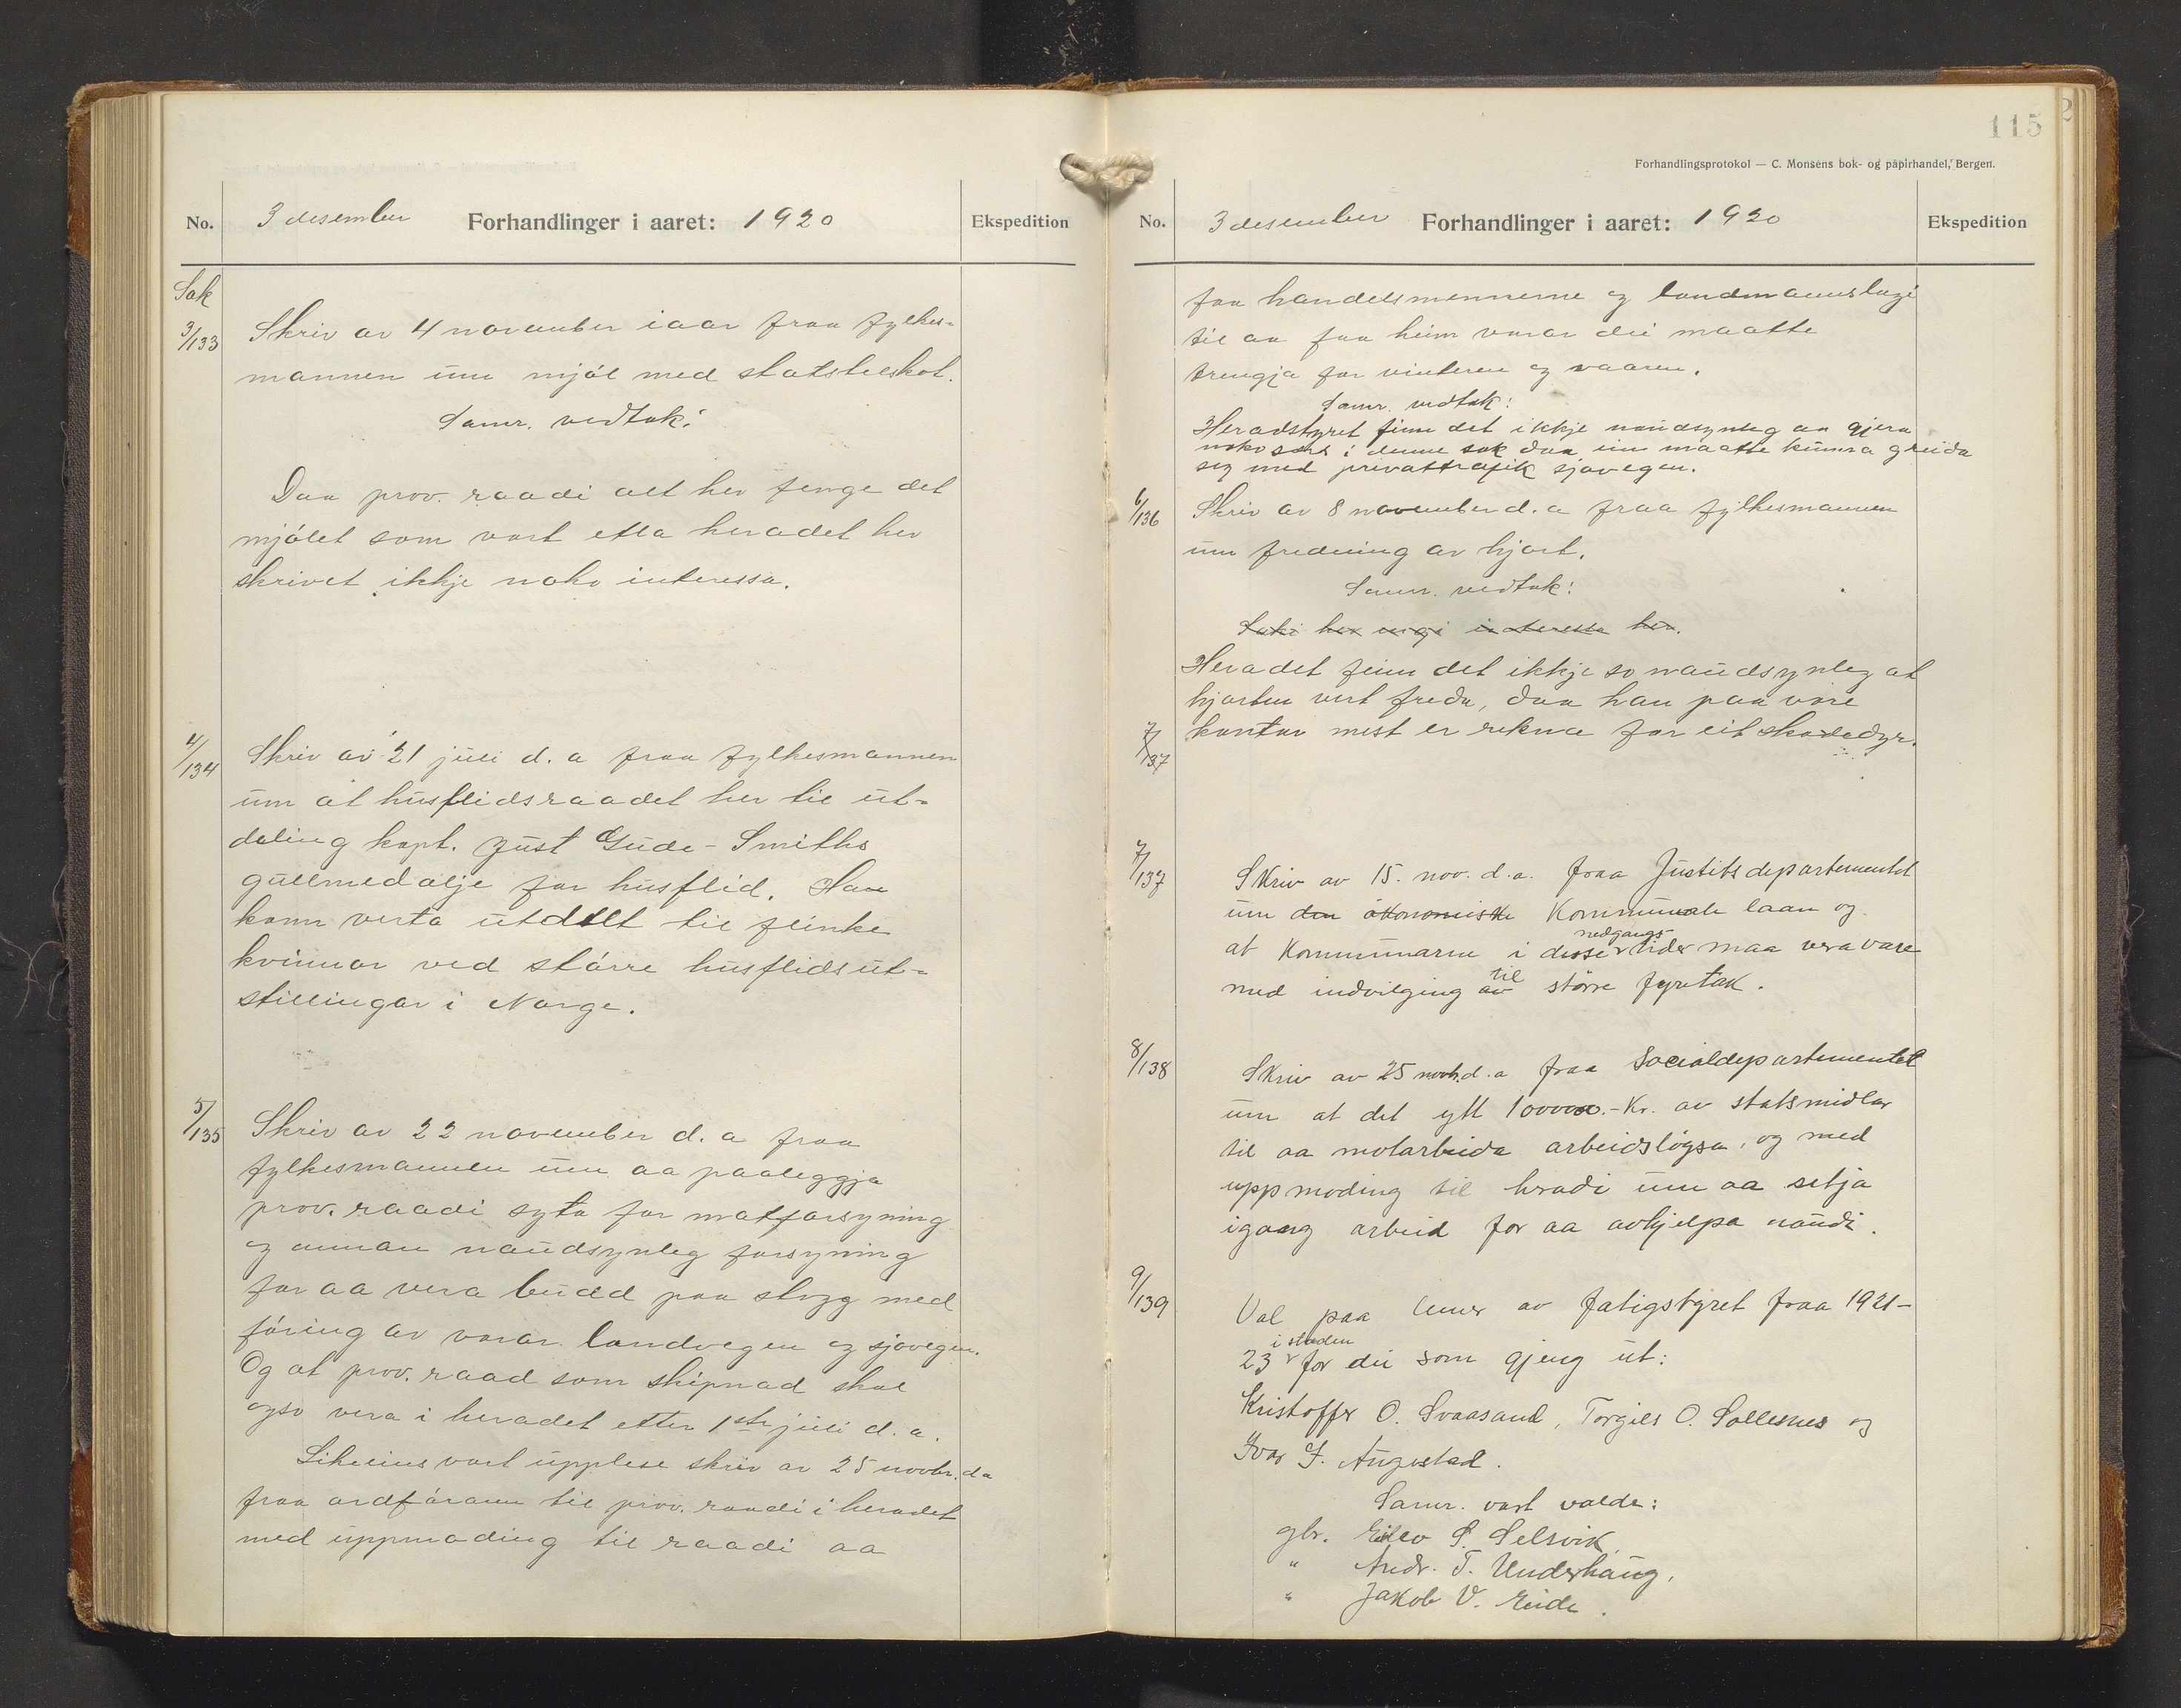 No. 3 desember Forhandlinger i aaret: 1920 Ekspedition
Sak
3/133 Skriv av 4 november iaar fraa fylkes-
mannen um mjøl med statstilskot.
Samr. vedtak:
Daa prov. raadi alt hev fenge det
mjølet som vart etla heradet hev
skrivet ikkje noko interessa.
4/134 Skriv av 21 juli d. a fraa fylkesmannen
um at husflidsraadet hev til ut-
deling kapt. Just Gude-Smiths
gullmedalje for husflid. Han
kann verta utdelt til flinke
kvinnor ved større husflidsut-
stillingar i Norge.
5/135 Skriv av 22 november d. a fraa
fylkesmannen um aa paaleggja
prov. raadi syta for matforsyning
og annan naudsynleg forsyning
for aa vera budd paa stogg med
føring av varar landvegen og sjøvegen.
Og at prov. raad som skipnad skal
ogso vera i heradet etter 1ste juli d. a.
Likeeins vart upplese skriv av 25 novbr. d a
fraa ordføraren til prov. raadi i heradet
med uppmoding til raadi aa
115
Forhandlingsprotokol — C. Monsens bok- og papirhandel, Bergen.
No. 3 desember Forhandlinger i aaret: 1920 Ekspedition
faa handelsmennerne og landmannslagi
til aa faa heim varar dei maatte
trengja for vinteren og vaaren.
Samr. vedtak:
Heradstyret finn det ikkje naudsynleg aa gjera
noko særs i denne sak daa ein maatte kunna greida
seg med privattrafik sjøvegen.
6/136 Skriv av 8 november d. a fraa fylkesmannen
um fredning av hjort.
Samr. vedtak:
Saki hev ingi interesse her.
Heradet finn det ikkje so naudsynleg at
hjorten vert freda, daa han paa vore
kantar mest er rekna for eit skadedyr.
7/137
7/137 Skriv av 15. nov. d. a. fraa Justitsdepartementet
um den økonomiske Kommunale laan og
nedgangs-
at Kommunarne i desse tider maa vera vare
til
med indvilging av større fyretak.
8/138 Skriv av 25 novb. d. a fraa Socialdepartementet
um at det ytt 100000.- Kr. av statsmidlar
til aa motarbeida arbeidsløysa, og med
uppmoding til heradi um aa setja
igang arbeid for aa avhjelpa naudi.
9/139 Val paa lemer av fatigstyret fraa 1921-
i staden
23 for dei som gjeng ut:
Kristoffer O. Svaasand, Torgils O. Sollesnes og
Ivar J. Augestad.
Samr. vart valde:
gbr. Eilev S. Selsvik
" Andr. T. Underhaug.
" Jakob V. Eide.